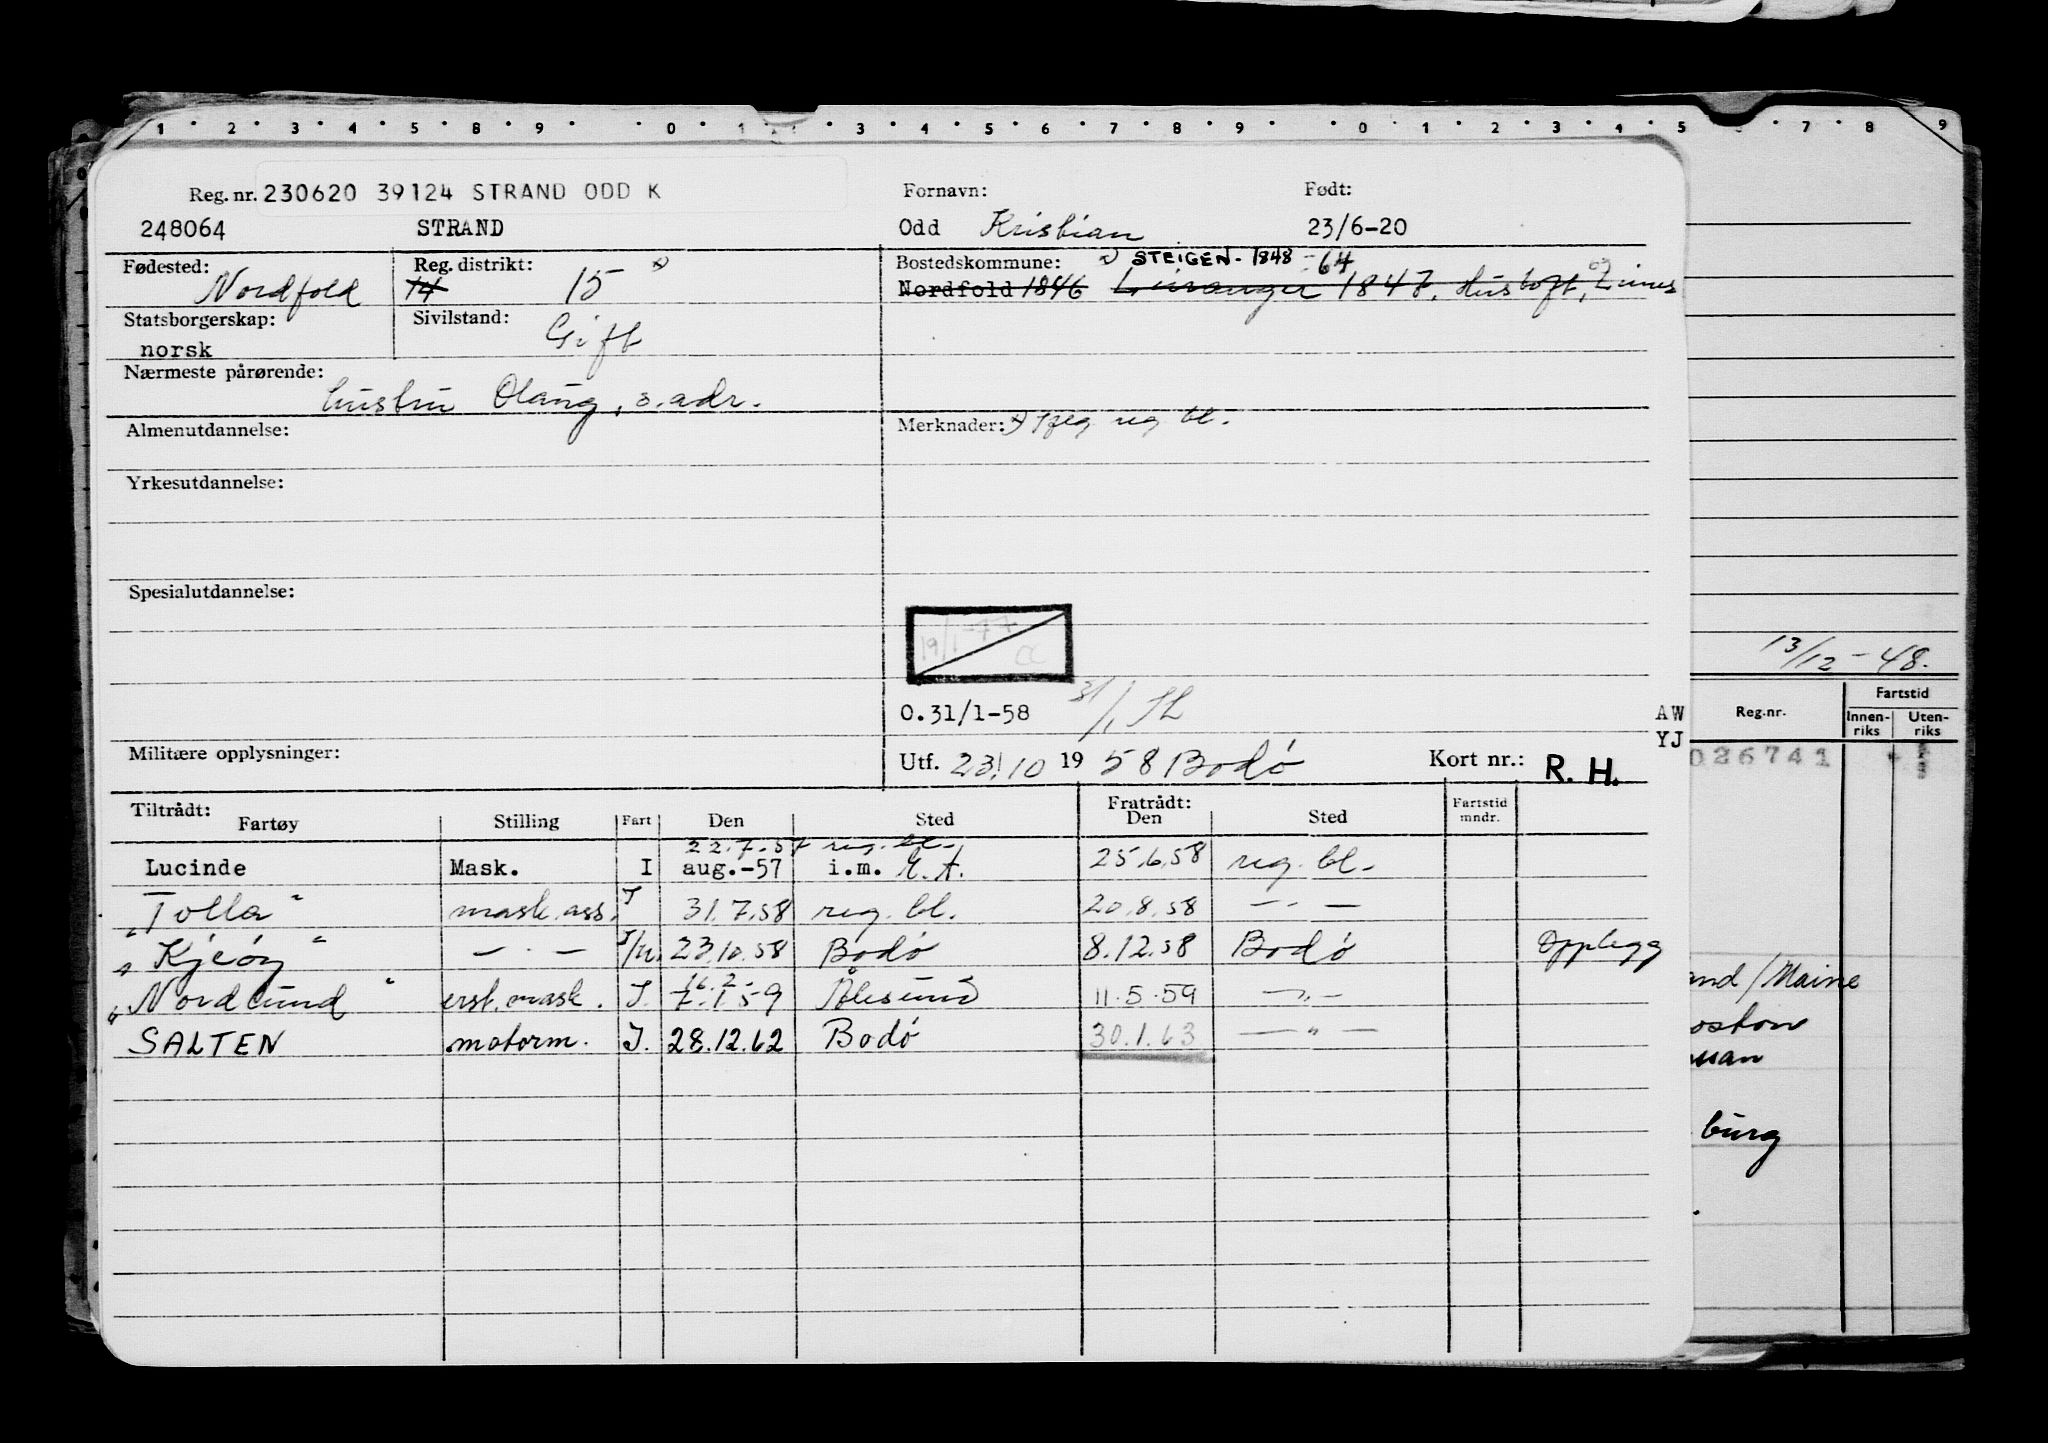 1 2 3 4 5 8 9 0 1 2 3 4 5 6 7 8 9 0 1 2 3 4 5 6 7 8 9
Reg. nr. 230620 39124 STRAND ODD K Fornavn: Født:
248064 STRAND Odd Kristian 23/6-20
Fødested: Reg. distrikt: x) Bostedskommune: x) STEIGEN - 1848 - 64
Nordfold 14 15 Nordfold 1846 Leiranger 1847, og
Statsborgerskap: Sivilstand:
norsk Gift
Nærmeste pårørende:
hustru Olaug, s. adr.
Almenutdannelse: Merknader: x) Steg reg bl.
Yrkesutdannelse:
Spesialutdannelse:
19/1-77
CC
13/12-48.
O.31/1-58 31/1 AW Reg.nr. Fartstid
YJ Innen-riks Uten-riks
Militære opplysninger: Utf. 23/10 19 58 Bodø Kort nr.: R. H. 026741
Tiltrådt: Fratrådt: Fartstid
Fartøy Stilling Fart Den Sted Den Sted mndr.
22.7.57 reg. bl.
Lucinde Mask. I aug.-57 i.m. E.A. 25.6.58 reg. bl.
"Tolla" mask. ass. I 31.7.58 reg. bl. 20.8.58 — " —
"Kjeøy" — " — I/U 23.10.58 Bodø 8.12.58 Bodø Opplegg
and/Maine
16.2.
"Nordlund" erst. mask. I. 7.1.59 Ålesund 11.5.59 — " —
oston
SALTEN motorm. I. 28.12.62 Bodø 30.1.63 — " —
burg